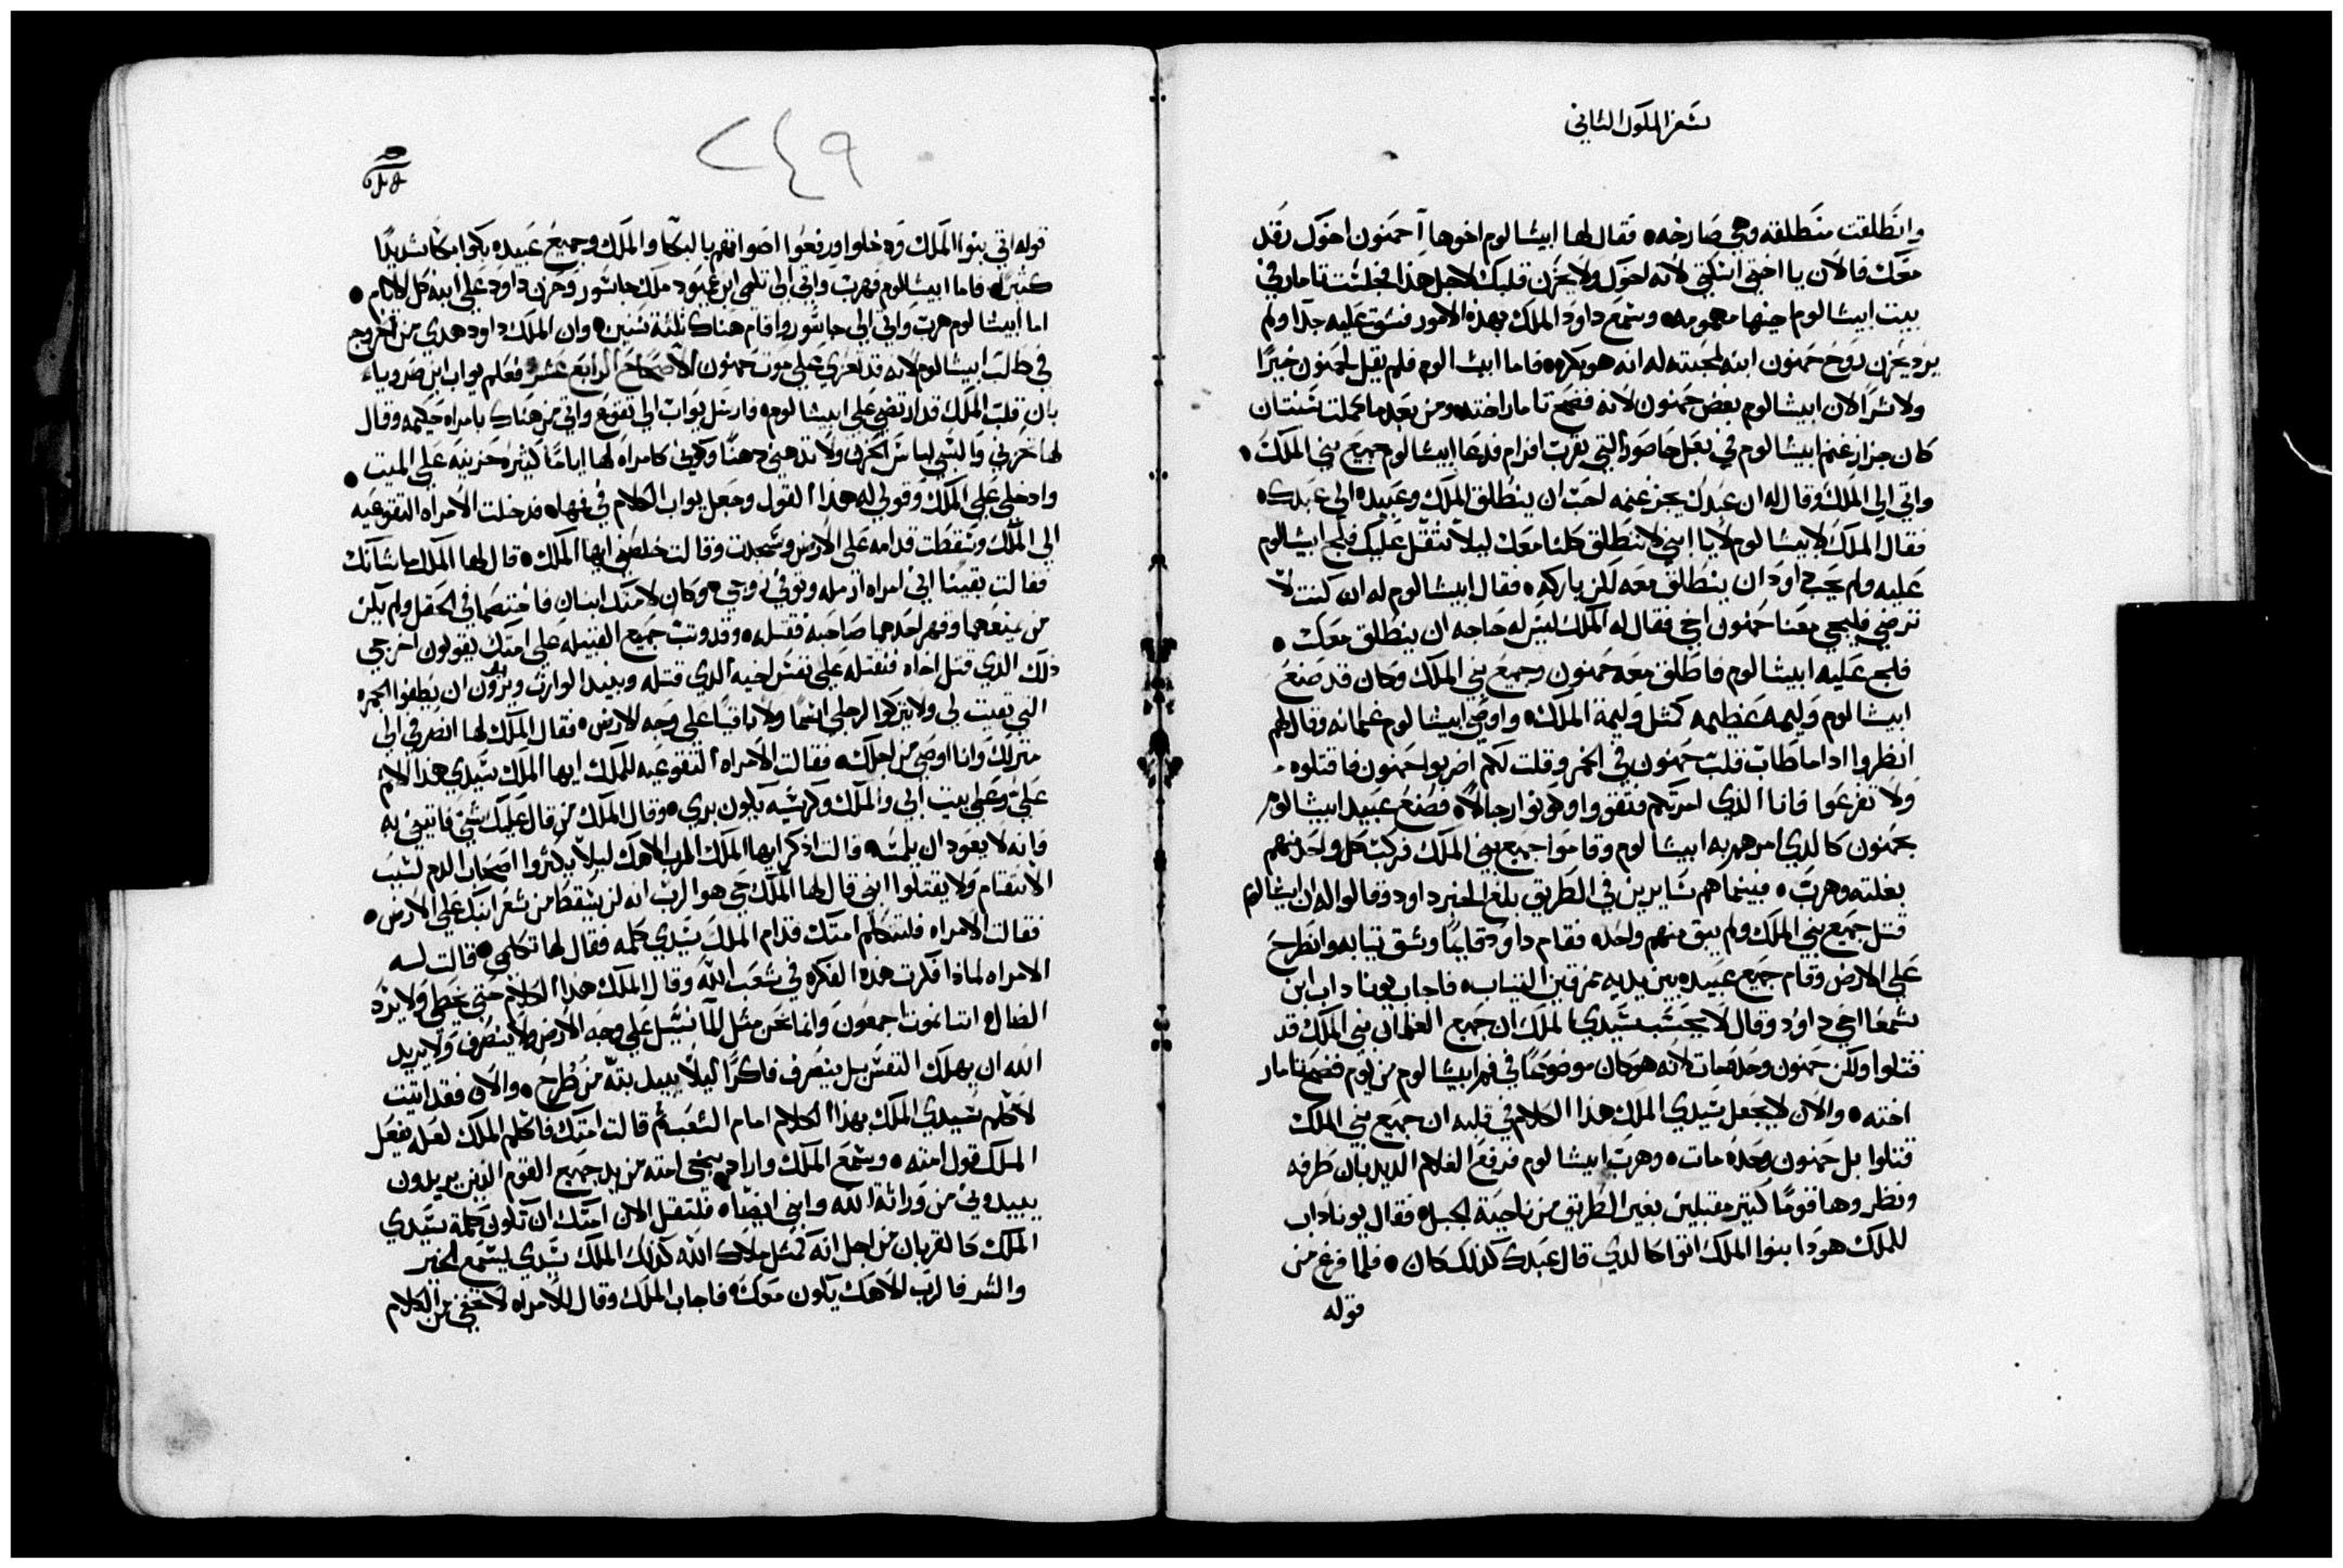 سفر الملوك الثاني
وانطلقت منطلقه وهي صارخه ۰ فقال لها ابيشالوم اخوها آحمنون اخوك رقد
معك فالان يا اختي اسكتي لانه اخوك ولا يحزن قلبك لاجل هذا فجلست تامار في
بيت ابيشالوم حينها مهمومه ۰ وسمع داود الملك بهذه الامور فشق عليه جدا ولم
يرد يحزن روح حمنون ابنه لمحبته له انه هو بكره ۰ فاما ابيشالوم فلم يقل لحمنون خيرًا
ولا شرا لان ابيشالوم بغض حمنون لانه فضح تامار اخته ۰ ومن بعد ما كملت سنتان
كان جزاز غنم ابيشالوم في بعل حاصور التي بقرب افرام فدعا ابيشالوم جميع بني الملك ۰
واتي الي الملك وقال له ان عبدك يجز غنمه احب ان ينطلق الملك وعبيده الي عبدك ۰
فقال الملك لابيشالوم لا يا ابني لا ننطلق كلنا معك ليلا نثقل عليك فلج ابيشالوم
عليه ولم يحب داود ان ينطلق معه لكن باركه ۰ فقال ابيشالوم له ان كنت لا
ترضي فليجي معنا حمنون اخي فقال له الملك ليس له حاجه ان ينطلق معك ۰
فلج عليه ابيشالوم فاطلق معه حمنون وجميع بني الملك وكان قد صنع
ابيشالوم وليمه عظيمه كمثل وليمة الملك ۰ واوصي ابيشالوم غلمانه وقال لهم
انظروا اذا ما طاب قلب حمنون في الخمر وقلت لكم اضربوا حمنون فاقتلوه ۰
ولا تفزعوا فانا الذي امرتكم فتقووا وكونوا رجالا ۰ فصنع عبيد ابيشالوم
بحمنون كالذي امرهم به ابيشالوم وقاموا جميع بني الملك فركب كل واحد منهم
بغلته وهرب ۰ فبينما هم سايرين في الطريق بلغ الخبر داود وقالوا له ان ابيشالوم
قتل جميع بني الملك ولم يبق منهم واحد ۰ فقام داود قايمًا وشق ثيابه وانطرح
علي الارض وقام جميع عبيده بين يديه ممزقين الثياب ۰ فاجاب يوناداب ابن
شمعا اخي داود وقال لا يحسب سيدي الملك ان جميع الغلمان بني الملك قد
قتلوا ولكن حمنون وحده مات لانه هو كان موضوعًا في فم ابيشالوم من يوم فضح تامار
اخته ۰ والان لا يجعل سيدي الملك هذا الكلام في قلبه ان جميع بني الملك
قتلوا بل حمنون وحده مات ۰ وهرب ابيشالوم فرفع الغلام الديدبان طرفه
ونظر وهاقومًا كثير مقبلين بغير الطريق من ناحية الجبل ۰ فقال يوناداب
للملك هوذا بنوا الملك اتوا كالذي قال عبدك كذلك كان ۰ فلما فرغ من
قوله
٢٤٩
قوله اتي بنوا الملك ودخلوا ورفعوا اصواتهم بالبكا والملك وجميع عبيده بكوا بكًا شديدًا
كثيرا ۰ فاما ابيشالوم فهرب واتي الي تلمي ابن عميود ملك جاشور وحزن داود علي ابنه كل الايام ۰
اما ابيشالوم هرب واتي الي جاشور واقام هناك ثلثة سنين ۰ وان الملك داود هدي من الخروج
في طلب ابيشالوم لانه قد تعزي علي موت حمنون الاصحاح الرابع عشر فعلم يواب ابن صرويا
بان قلب الملك قد ارتضي علي ابيشالوم ۰ فارسل يواب الي تقوع واتي من هناك بامراه حكيمه وقال
لها احزني والبسي لباس الحزن ولا تدهني دهنًا وكوني كامراه لها ايامًا كثيره حزينه علي الميت ۰
وادخلي علي الملك وقولي له هذا القول وجعل يواب الكلام في فمها ۰ فدخلت الامراه التقوعيه
الي الملك وسقطت قدامه علي الارض وسجدت وقالت خلصني ايها الملك ۰ قال لها الملك ما شانك
فقالت يقينًا اني امراه ارمله وتوفي زوجي ۰ وكان لامتك ابنان فاختصما في الحقل ولم يكن
من يمنعهما وقهر احدهما صاحبه فقتله ۰ وقد وثب جميع القبيله علي امتك يقولون اخرجي
ذلك الذي قتل اخاه فنقتله علي نفس اخيه الذي قتله ويبيد الوارث ويريدون ان يطفوا الجمره
التي بقيت لي ولا يتركوا لرجلي اسمًا ولا باقيًا علي وجه الارض ۰ فقال الملك لها انصرفي الي
منزلك وانا اوصي من اجلك ۰ فقالت الامراه التقوعيه للملك ايها الملك سيدي هذا الاثم
علي وعلي بيت ابي والملك وكرسيه يكون بري ۰ وقال الملك من قال عليك شي فاتيني به
فانه لا يعود ان يلمسه ۰ قالت اذكر ايها الملك الرب الاهك ليلا يكثروا اصحاب الدم لسبب
الانتقام ولا يقتلوا ابني قال لها الملك حي هو الرب انه لن يسقط من شعر ابنك علي الارض ۰
فقالت الامراه فلتتكلم امتك قدام الملك سيدي كلمه فقال لها تكلمي ۰ قالت له
الامراه لماذا فكرت هذه الفكره في شعب الله وقال الملك هذا الكلام حتي يخطي ولا يرد
الضال ۰ اننا نموت اجمعون وانما نحن مثل الما نسيل علي وجه الارض ولا ينصرف ولا يريد
الله ان يهلك النفس بل ينصرف فاكرًا ليلا يبيد بته من طرح ۰ والان فقد اتيت
لاكلم سيدي الملك بهذا الكلام امام الشعب ثم قالت امتك فاكلم الملك لعله يفعل
الملك قول امته ۰ وسمع الملك واراد ينجي امته من يد جميع القوم الذين يريدون
يبيدوني من وراثة الله وابني ايضًا ۰ فلتقل الان امتك ان تكون كلمة سيدي
الملك كالقربان من اجل انه كمثل ملاك الله كذلك الملك سيدي يسمع الخير
والشر فالرب الاهك يكون معك ۰ فاجاب الملك وقال للامراه لا تخفي من الكلام